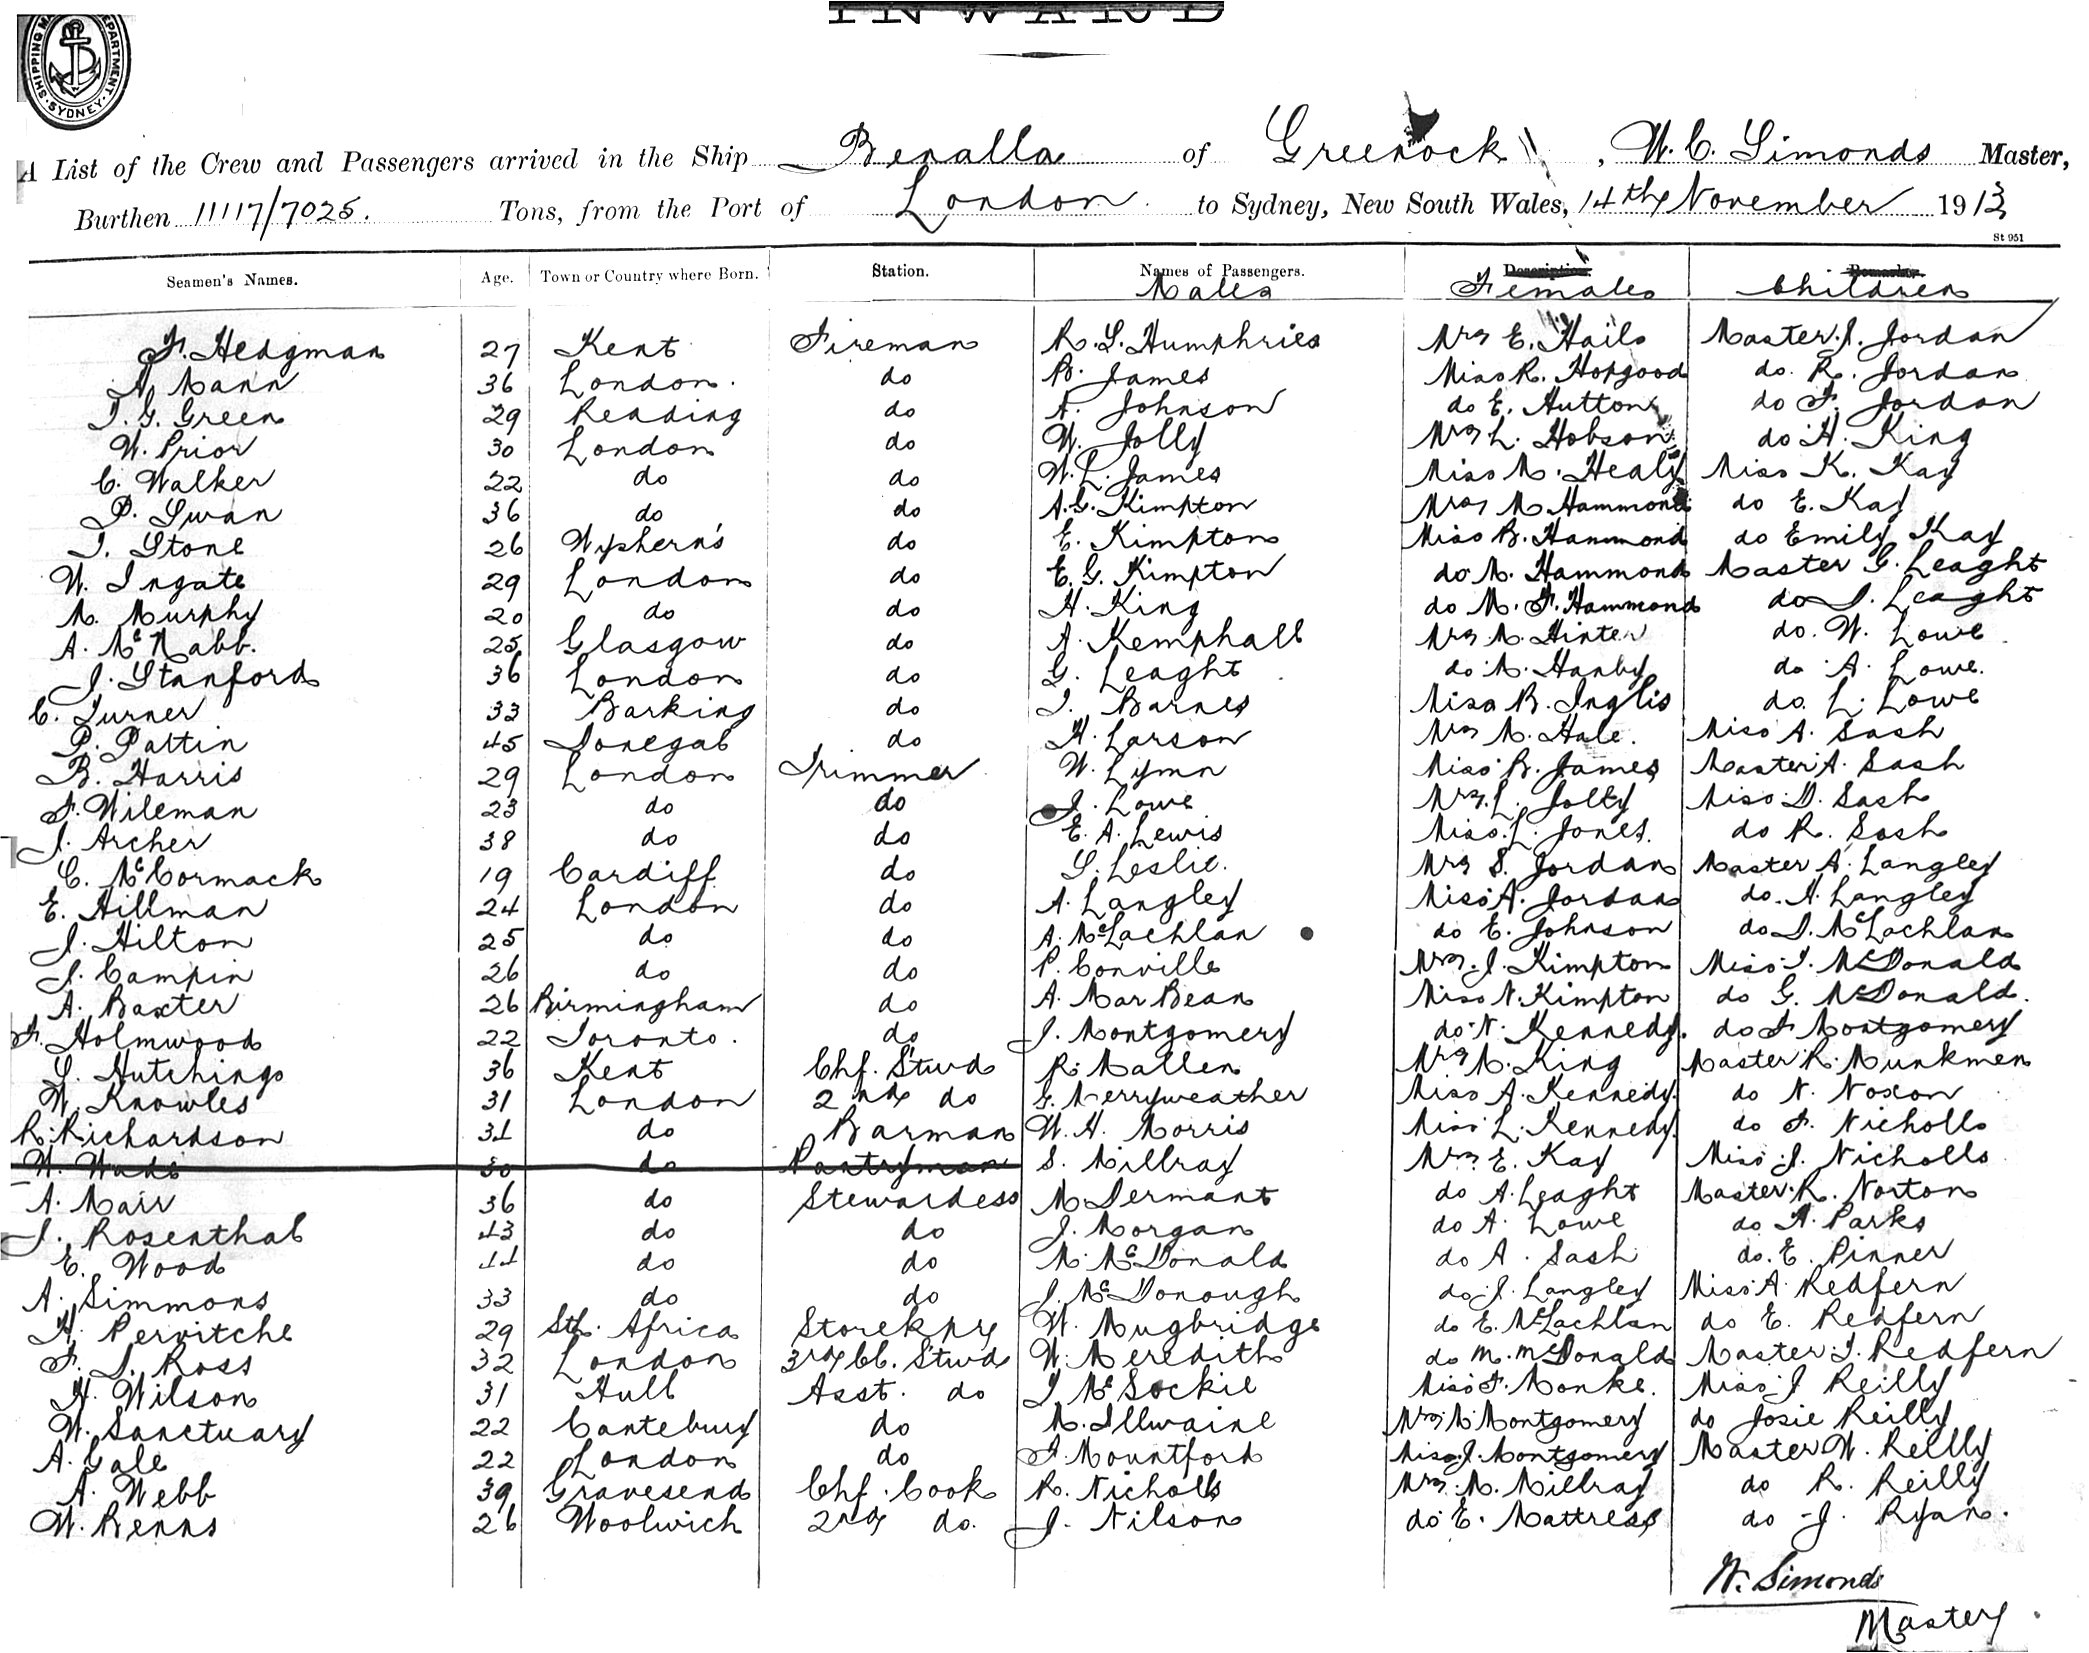 INWARD
SHIPPING MA DEPARTMENT SYDNEY
A List of the Crew and Passengers arrived in the Ship Benalla of Greenock, W. C. Simonds Master,
Burthen 11117/7025. Tons, from the Port of London to Sydney, New South Wales, 14th November 1913
St 951
Seamen's Names. Age. Town or Country where Born. Station. Names of Passengers. Description. Remarks.
Males Females Children
F. Hedgman 27 Kent Fireman R. S. Humphries Mrs E. Hails Master J. Jordan
A. Mann 36 London. do B. James Miss R. Hopgood do. R. Jordan
T. G. Green 29 Reading do A. Johnson do E. Hutton do F. Jordan
W. Prior 30 London do W. Jolly Mrs L. Hobson do H. King
C. Walker 22 do do W. L. James Miss M. Healy Miss K. Kay
P. Swan 36 do do A. G. Kimpton Mrs M. Hammond do E. Kay
T. Stone 26 do E. Kimpton Miss B. Hammond do Emily Kay
W. Ingate 29 London do E. G. Kimpton do M. Hammond Master G. Leaght
M. Murphy 20 do do H. King do M. F. Hammond do J. Leaght
A. McNabb. 25 Glasgow do A. Kemphall Mrs M. Hinter do. W. Lowe
J. Stanford 36 London do G. Leaght do M. Hanby do A. Lowe.
C. Turner 33 Barking do J. Barnes Miss B. Inglis do. L. Lowe
P. Pattin 45 Donegal do H. Larson Mrs M. Hale. Miss A. Sash
B. Harris 29 London Trimmer W. Lymn Miss B. James Master A. Sash
F. Wileman 23 do do J. Lowe Mrs. L. Jolly Miss D. Sash
J. Archer 38 do do E. A. Lewis Miss. L. Jones. do R. Sash
C. McCormack 19 Cardiff do S. Leslie. Mrs S. Jordan Master A. Langley
E. Hillman 24 London do A. Langley Miss A. Jordan do. H. Langley
J. Hilton 25 do do A. McLachlan do E. Johnson do J. McLachlan
J. Campin 26 do do P. Conville Mrs. J. Kimpton Miss J. McDonald
A. Baxter 26 Birmingham do A. MarBean Miss N. Kimpton do G. McDonald.
F. Holmwood 22 Toronto. do J. Montgomery do N. Kennedy. do F Montgomery
S. Hutchings 36 Kent Chf. Stwd R. Mallen Mrs M. King Master R. Munkmen
W. Knowles 31 London 2nd do G. Merryweather Miss A. Kennedy. do N. Noxon
R. Richardson 31 do Barman W. H. Morris Miss L. Kennedy. do F. Nicholls
W. Wade 30 do Pantryman S. Millray Mrs E. Kay Miss J. Nicholls
A. Mair 36 do Stewardess M. Dermant do A. Leaght Master R. Norton
J. Rosenthal 43 do do J. Morgan do A. Lowe do H. Parks
E. Wood 44 do do M. McDonald do A. Sash do. E. Pinner
A. Simmons 33 do do J. McDonough do J. Langley Miss A. Redfern
H. Pervitche 29 Sth. Africa Storekpr W. Mugbridge do E. McLachlan do E. Redfern
F. J. Ross 32 London 3rd Cl. Stwd W. Meredith do M. McDonald Master J. Redfern
H. Wilson 31 Hull Asst. do J. McSockie Miss F. Monke. Miss J Reilly
W. Sanctuary 22 Cantebury do M. Illwaine Mrs M Montgomery do Josie Reilly
A. Gale 22 London do F. Mountford Miss J. Montgomery Master W. Reilly
A. Webb 39 Gravesend Chf. Cook R. Nicholls Mrs. M. Millray do R. Reilly
W. Benns 26 Woolwich 2nd do. J. Nilson do E. Mattress do J. Ryan.
W. Simonds
Master